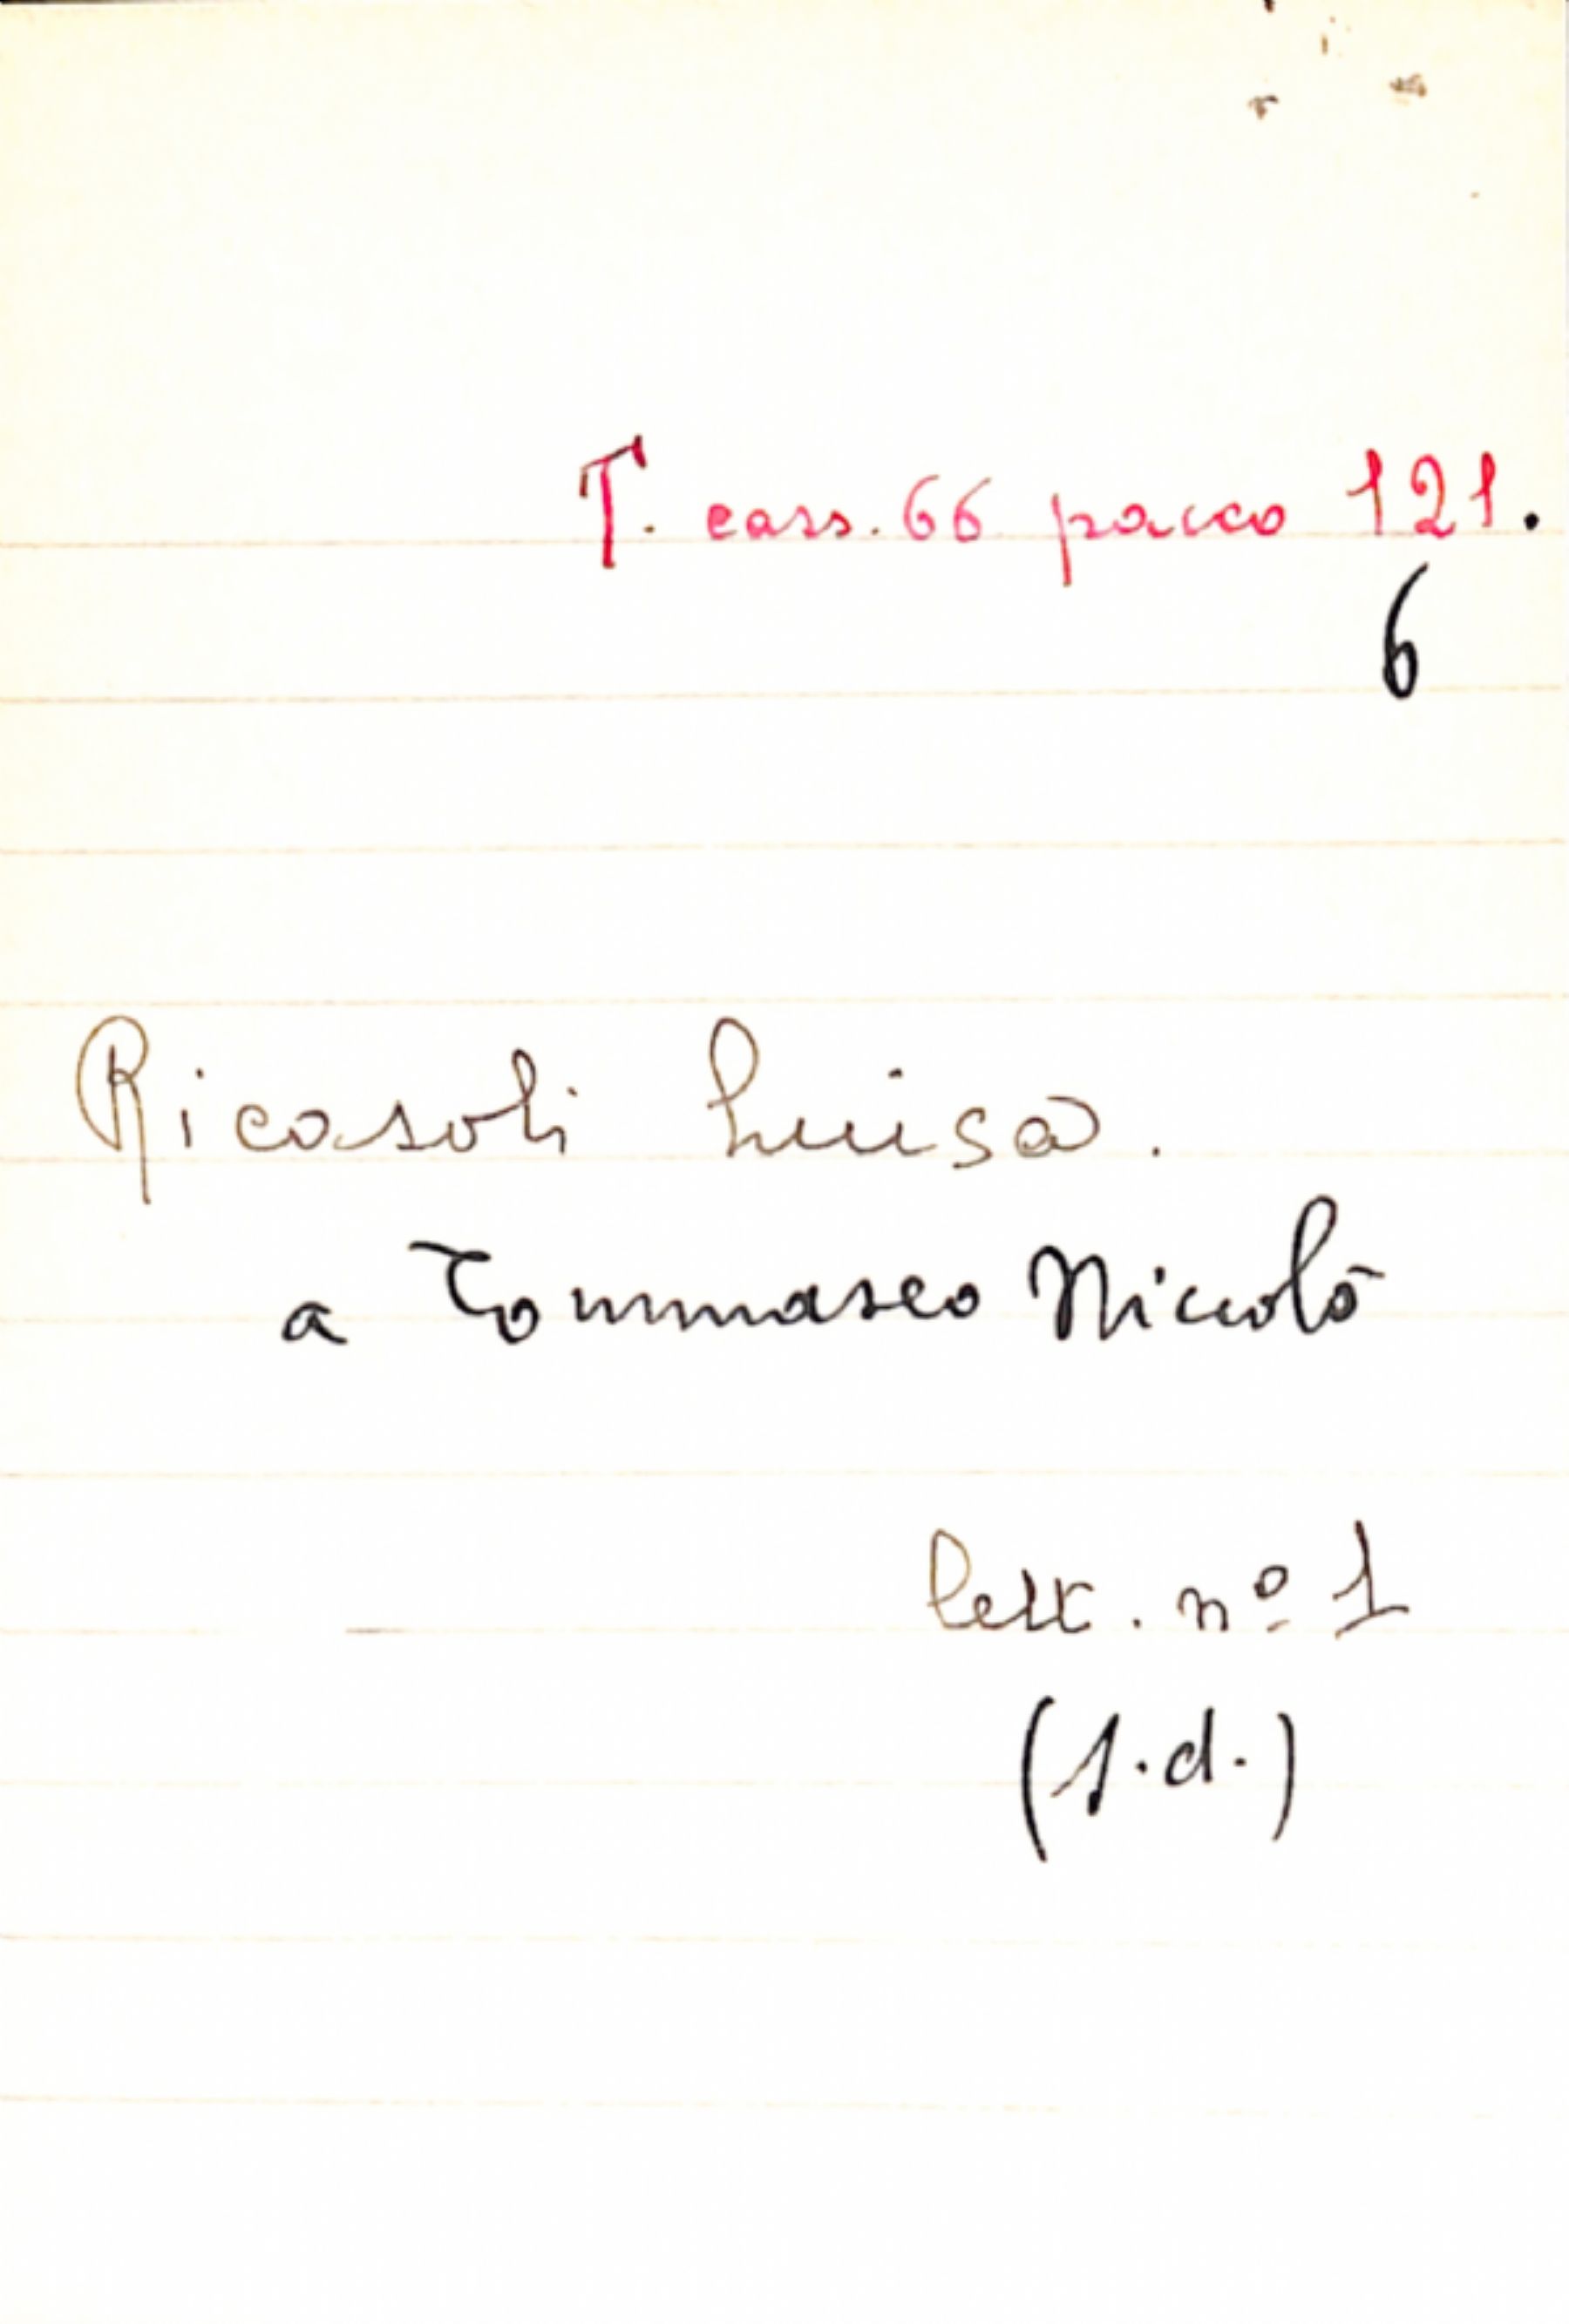 T. cass. 66 pacco 121.
6
Ricasoli Luisa.
a Tommaseo Niccolò
lett. nº 1
(s.d.)